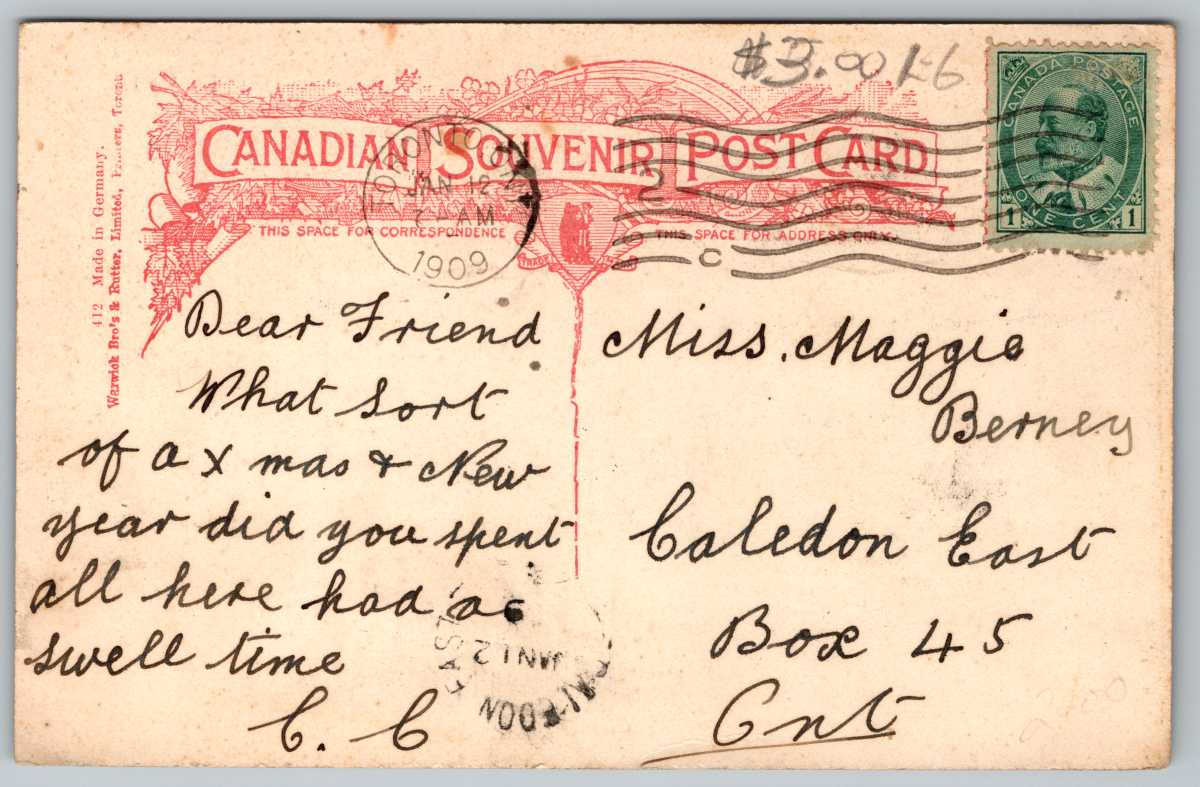 $3.00 1-6
CANADIAN SOUVENIR POST CARD
THIS SPACE FOR CORRESPONDENCE
THIS SPACE FOR ADDRESS ONLY.
412 Made in Germany.
Warwick Bro's & Rutter, Limited, Printers, Toronto
TORONTO, ONT.
JAN 12
7-AM
1909
2
C
CANADA POSTAGE
1 ONE CENT 1
Dear Friend
What sort
of a x mas & New
year did you spent
all here had a
swell time
C. C
Miss. Maggie
Berney
Caledon East
Box 45
Ont
CALEDON EAST
JAN 12